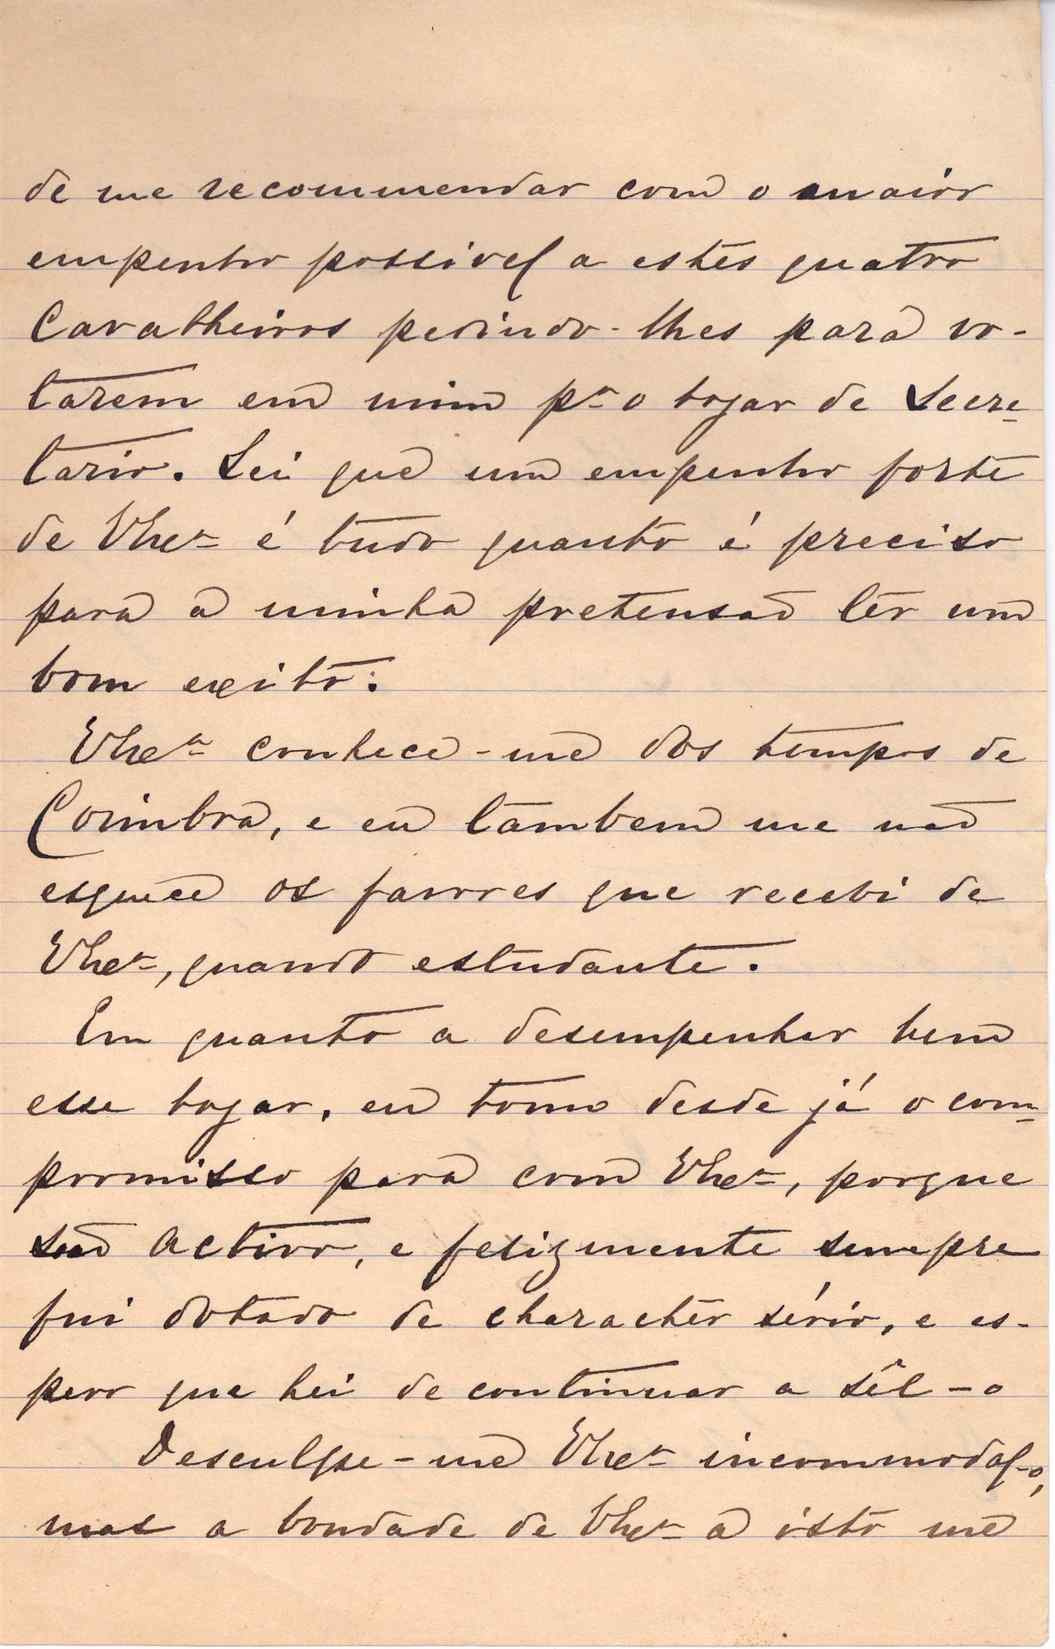 de me recommendar com o maior
empenho possivel a estes quatro
Cavalheiros pedindo-lhes para vo-
tarem em mim pª o logar de Secre-
tario. Sei que um empenho forte
de VExª é tudo quanto é preciso
para a minha pretensão ter um
bom exito.
VExª conhece-me dos tempos de
Coimbra, e eu tambem me não
esquece os favores que recebi de
VExª, quando estudante.
Em quanto a desempenhar bem
esse logar, eu tomo desde já o com-
promisso para com VExª, porque
sou activo, e felizmente sempre
fui dotado de character sério, e es-
pero que hei de continuar a sêl-o
Desculpe-me VExª incommodal-o,
mas a bondade de VExª a isto me